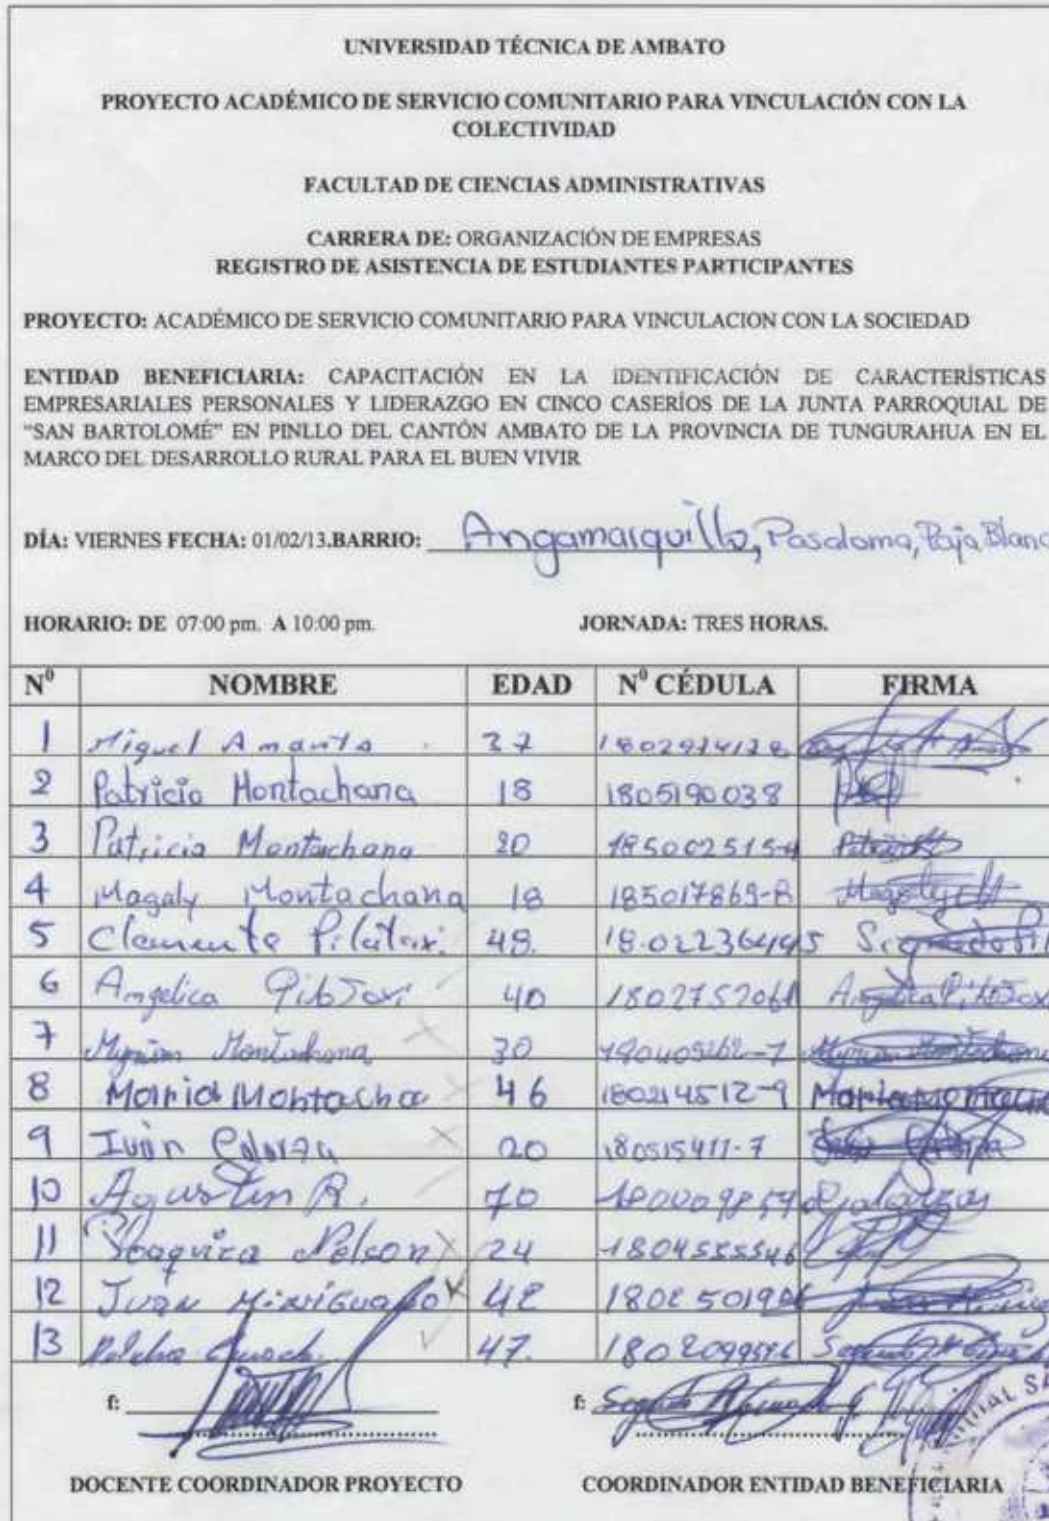 UNIVERSIDAD TÉCNICA DE AMBATO
PROYECTO ACADÉMICO DE SERVICIO COMUNITARIO PARA VINCULACIÓN CON LA
COLECTIVIDAD
FACULTAD DE CIENCIAS ADMINISTRATIVAS
CARRERA DE: ORGANIZACIÓN DE EMPRESAS
REGISTRO DE ASISTENCIA DE ESTUDIANTES PARTICIPANTES
PROYECTO: ACADÉMICO DE SERVICIO COMUNITARIO PARA VINCULACION CON LA SOCIEDAD
ENTIDAD BENEFICIARIA: CAPACITACIÓN EN LA IDENTIFICACIÓN DE CARACTERÍSTICAS
EMPRESARIALES PERSONALES Y LIDERAZGO EN CINCO CASERÍOS DE LA JUNTA PARROQUIAL DE
“SAN BARTOLOMÉ” EN PINLLO DEL CANTÓN AMBATO DE LA PROVINCIA DE TUNGURAHUA EN EL
MARCO DEL DESARROLLO RURAL PARA EL BUEN VIVIR
DÍA: VIERNES FECHA: 01/02/13.BARRIO: Angamarquillo, Pasaloma, Paja Blanc
HORARIO: DE 07:00 pm. A 10:00 pm. JORNADA: TRES HORAS.
Nº NOMBRE EDAD Nº CÉDULA FIRMA
1 Miguel 37
2 Patricio Montachana 18 1805190038
3 Patricia Montachana 20
4 Magaly Montachana 18 185017869-8
5 Clemente 48.
6 Angelica 40
7 Myriam Montachana 30
8 Maria Montacha 46 180214512-9
9 Iván 20 180515411-7
10 Agustin R. 70
11 Nelson 24 1804555546
12 Juan 42
13 47.
f: f:
DOCENTE COORDINADOR PROYECTO COORDINADOR ENTIDAD BENEFICIARIA